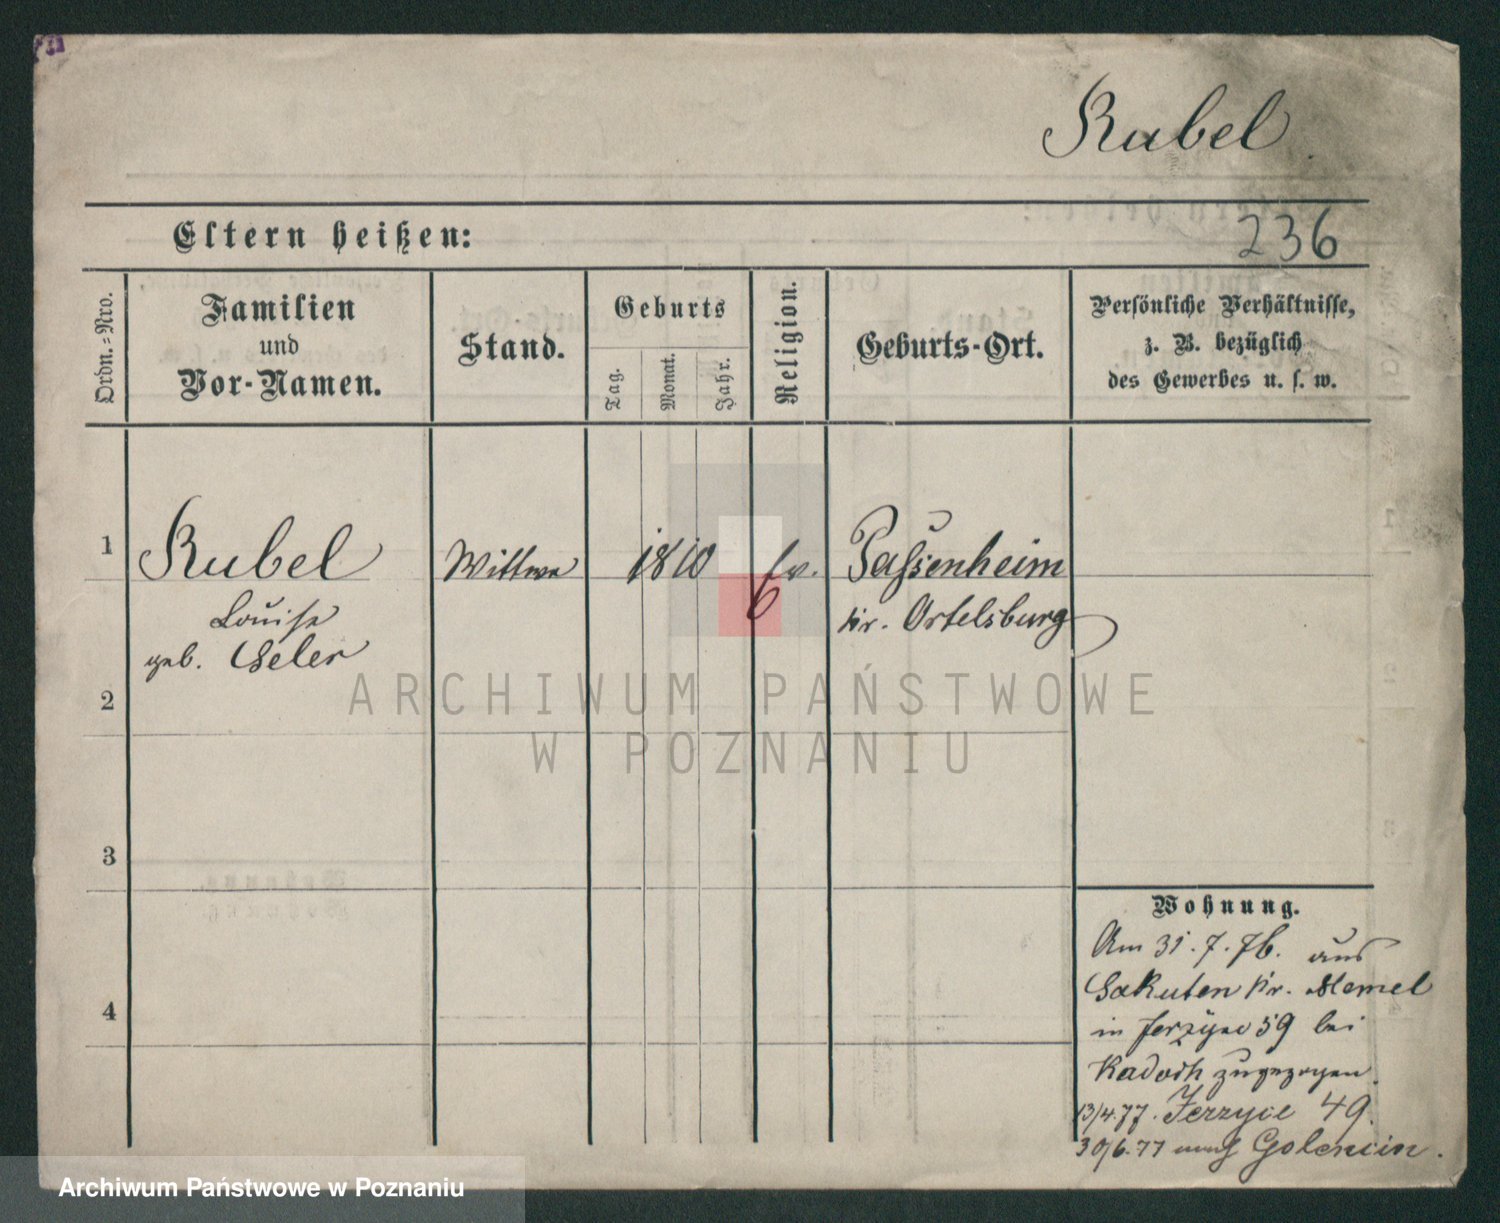 Rubel
Eltern heißen:
236
Ordn.=Nro.
Familien
und
Vor-Namen.
Stand.
Geburts
Tag.
Monat.
Jahr.
Religion.
Geburts-Ort.
Persönliche Verhältnisse,
z. B. bezüglich
des Gewerbes u. s. w.
1
Rubel
Louise
geb.
Wittwe
1810
ev.
Passenheim
Kr. Ortelsburg
2
3
4
Wohnung.
Am 31.7.76. aus
Sakuten Kr. Memel
in Jerzyce 59 bei
Kadoch zugezogen.
13/4.77. Jerzyce 49.
30/6.77 nach Golencin.
ARCHIWUM PAŃSTWOWE
W POZNANIU
Archiwum Państwowe w Poznaniu